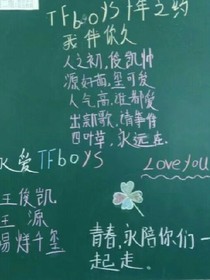 TFboys十年之约
我伴你久
人之初,俊凯帅
源好萌,玺可爱
人气高,谁都爱
出新歌,请事情
四叶草,永远在
永爱TFboys
Love you
王俊凯
王源
易烊千玺
青春,永陪你们一
起走.